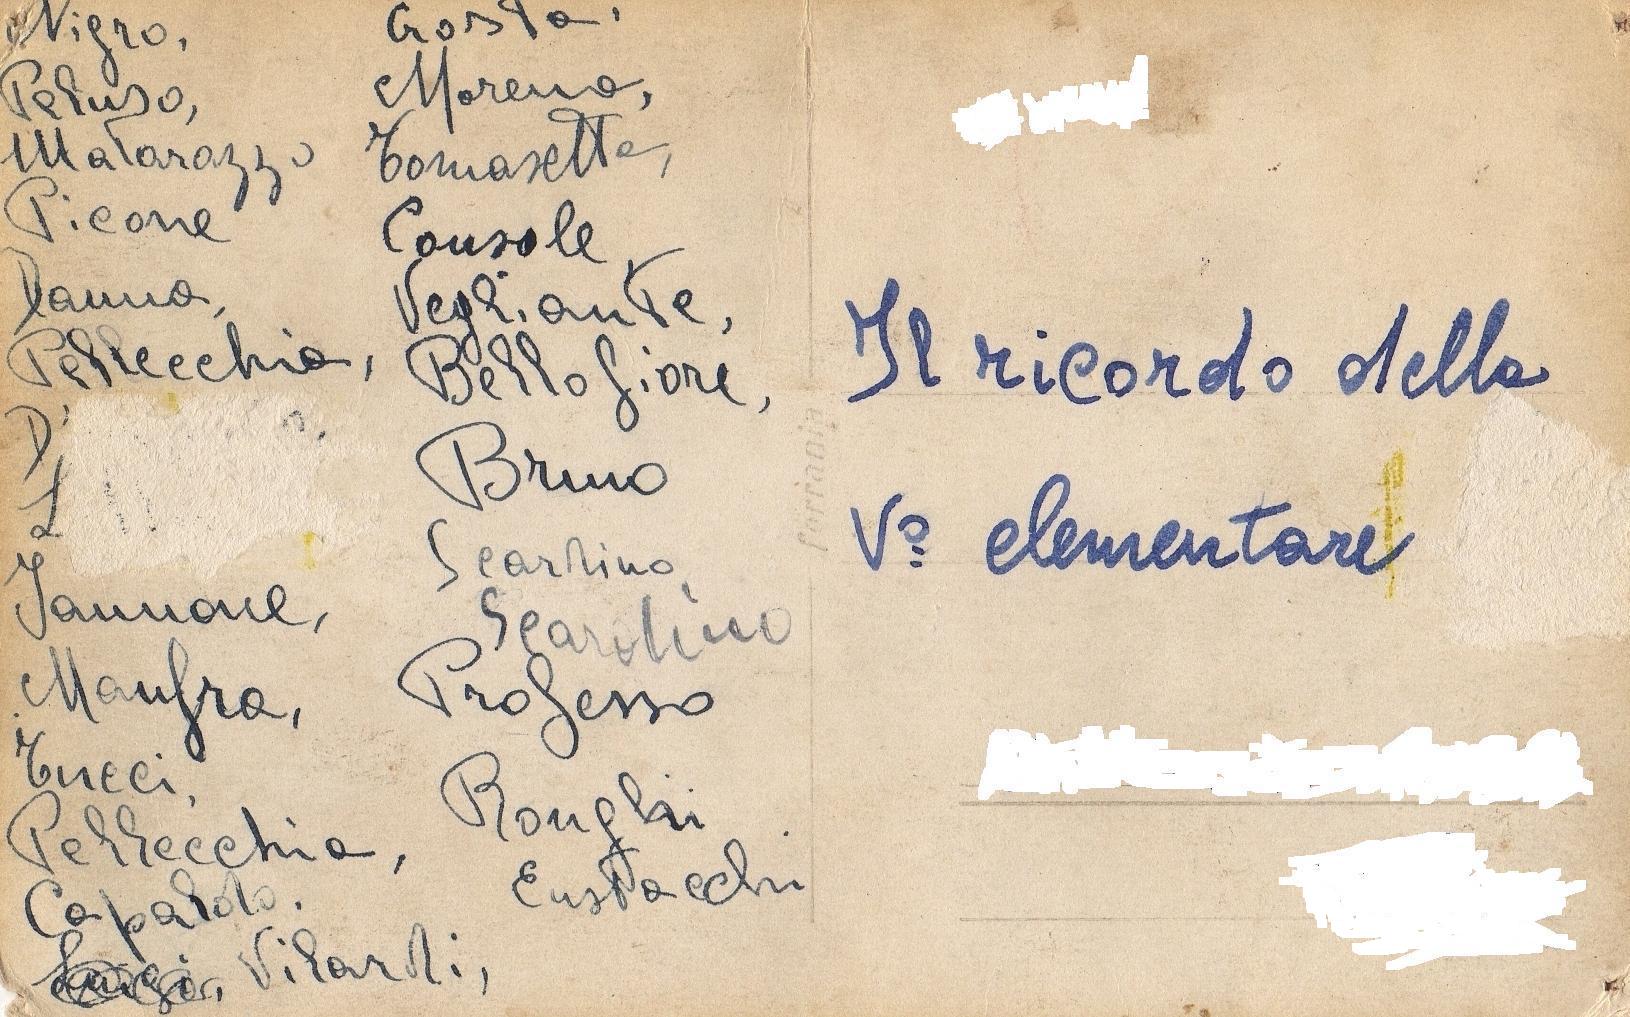 Nigro,
Peluso,
Matarazzo
Picone
Danna,
Pellecchia,
D'
Iannone,
Manfra,
Tucci,
Pellecchia,
Capaldo.
Luigi, Vilardi,
Costa,
Morena,
Tomasetta,
Console
Vegliante,
Bellofiore,
Bruno
Scardino,
Scardino
Professo
Ronghi
Eustacchi
ferrania
Il ricordo della
Vª elementare